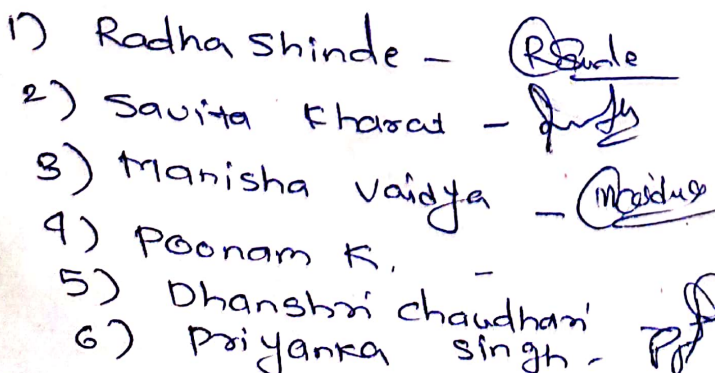 1) Radha Shinde -
2) Savita Kharat -
3) Manisha Vaidya -
4) Poonam K. -
5) Dhanshri Chaudhari
6) Priyanka Singh -